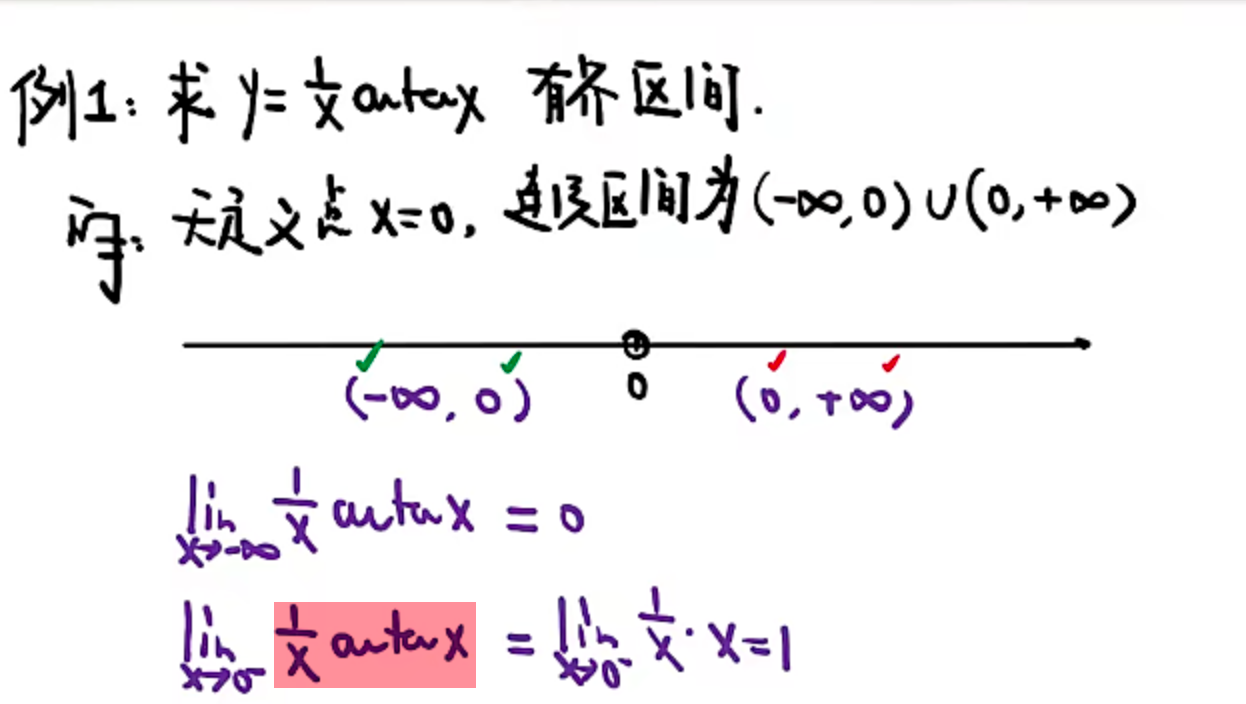 例1: 求 y = 1/x arctanx 有界区间.
解: 无定义点 x=0, 连续区间为(-∞,0)∪(0,+∞)
(-∞, 0) 0 (0, +∞)
lim x→-∞ 1/x arctanx = 0
lim x→0⁻ 1/x arctanx = lim x→0⁻ 1/x · x = 1